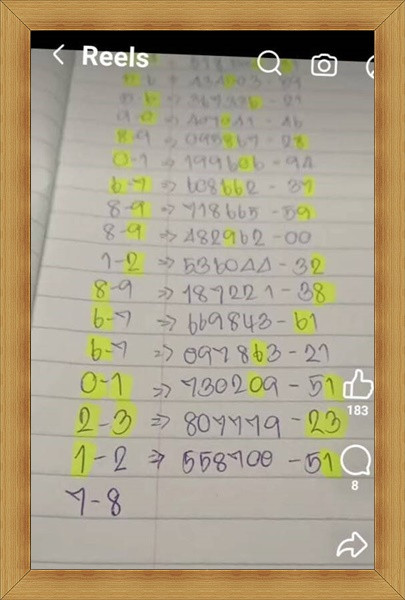 Reels
9-0 => 407041 - 46
8-9 => 095867 - 28
0-1 => 199606 - 94
6-7 => 608662 - 37
8-9 => 718665 - 59
8-9 => 482962 - 00
1-2 => 536044 - 32
8-9 => 187221 - 38
6-7 => 669843 - 61
6-7 => 097863 - 21
0-1 => 730209 - 51
183
2-3 => 807779 - 23
1-2 => 558700 - 51
8
7-8